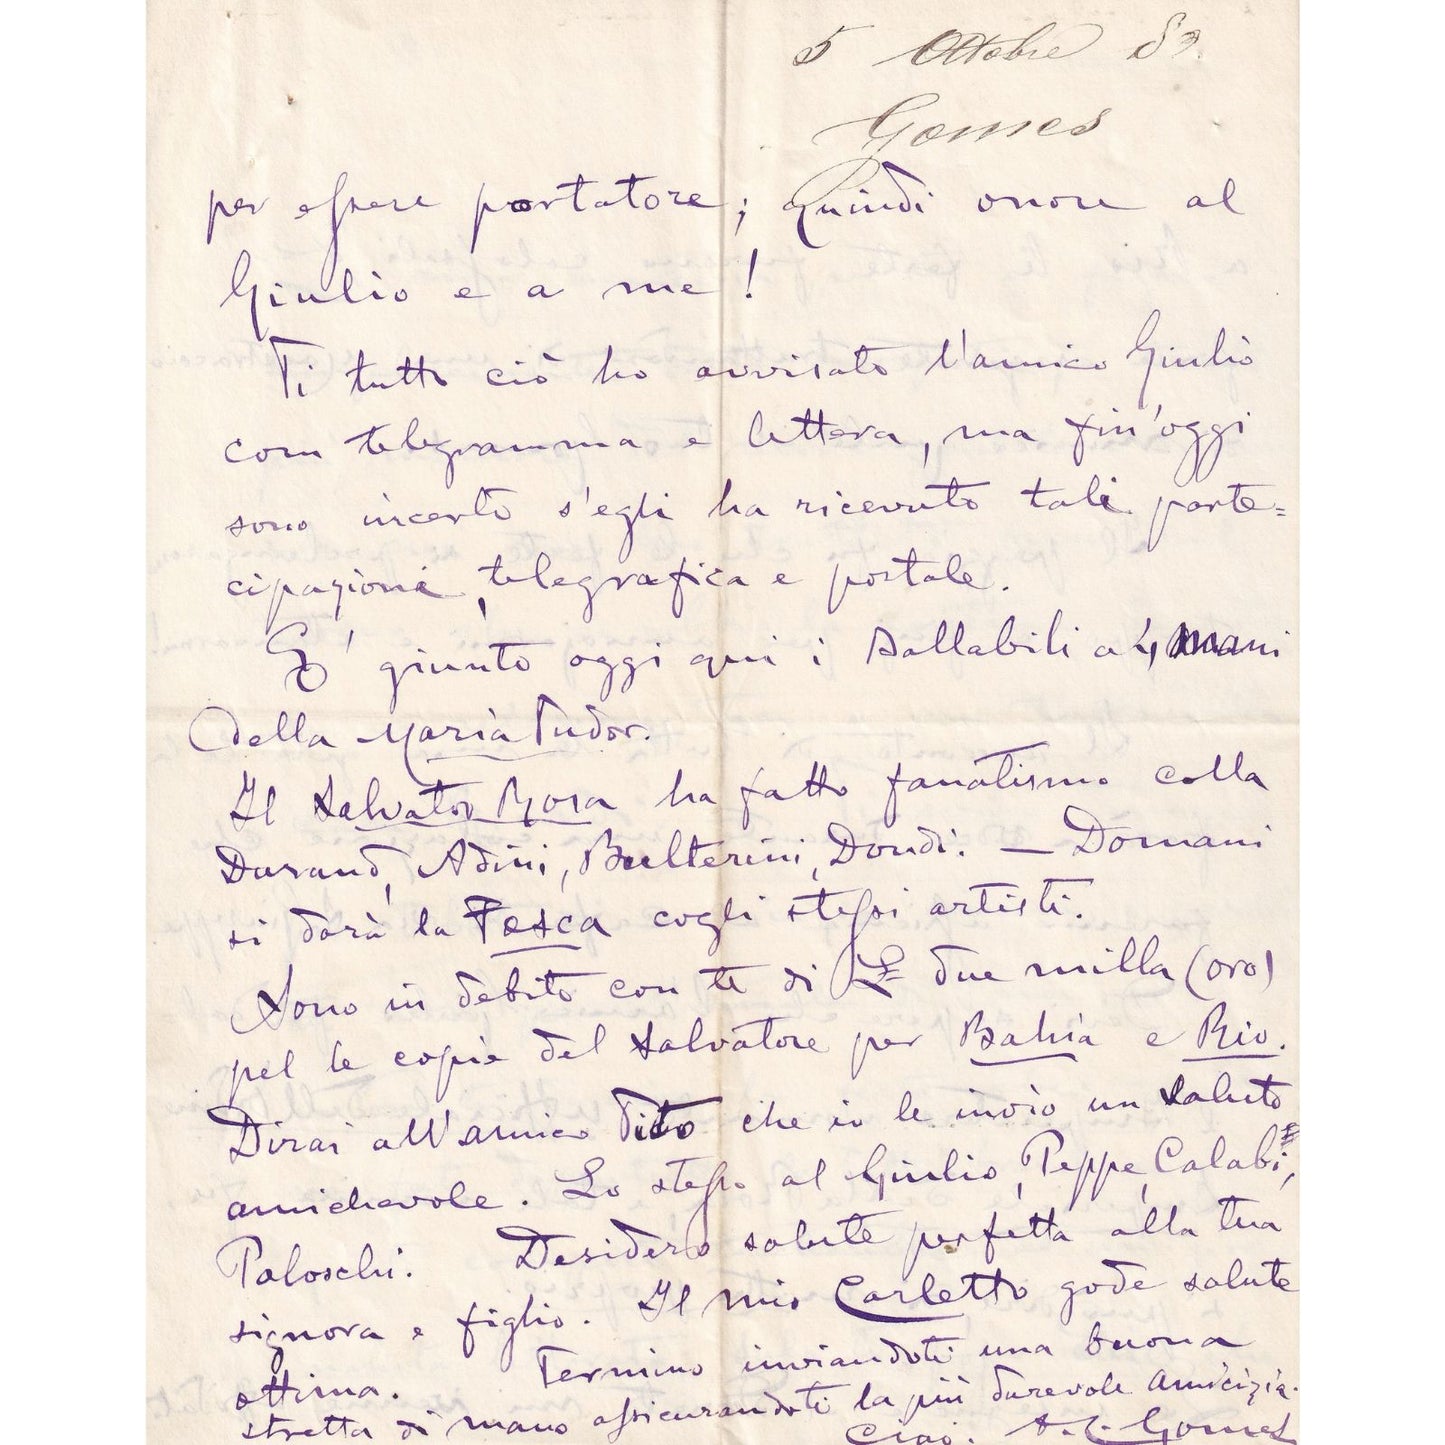 5 Ottobre 83.
Gomes
per essere portatore; Quindi onore al
Giulio e a me!
Ti tutto ciò ho avvisato l'amico Giulio
com telegramma e lettera, ma fin'oggi
sono incerto s'egli ha ricevuto tali parte=
cipazioni, telegrafica e postale.
E' giunto oggi qui i Ballabili a 4 mani
della Maria Tudor.
Il Salvator Rosa ha fatto fanatismo colla
Durand, Adini, Bulterini, Dondi. — Domani
si darà la Fosca cogli stessi artisti.
Sono in debito con te di L= due milla (oro)
pel le copie del Salvatore per Bahia e Rio.
Dirai all'amico Tito che io le invio un saluto
amichevole. Lo stesso al Giulio, Peppe, Calabi,
Paloschi. Desidero salute perfetta alla tua
signora e figlio. Il mio Carletto gode salute
ottima. Termino inviandoti una buona
stretta di mano assicurandoti la più durevole amicizia.
Ciao. A. C. Gomes